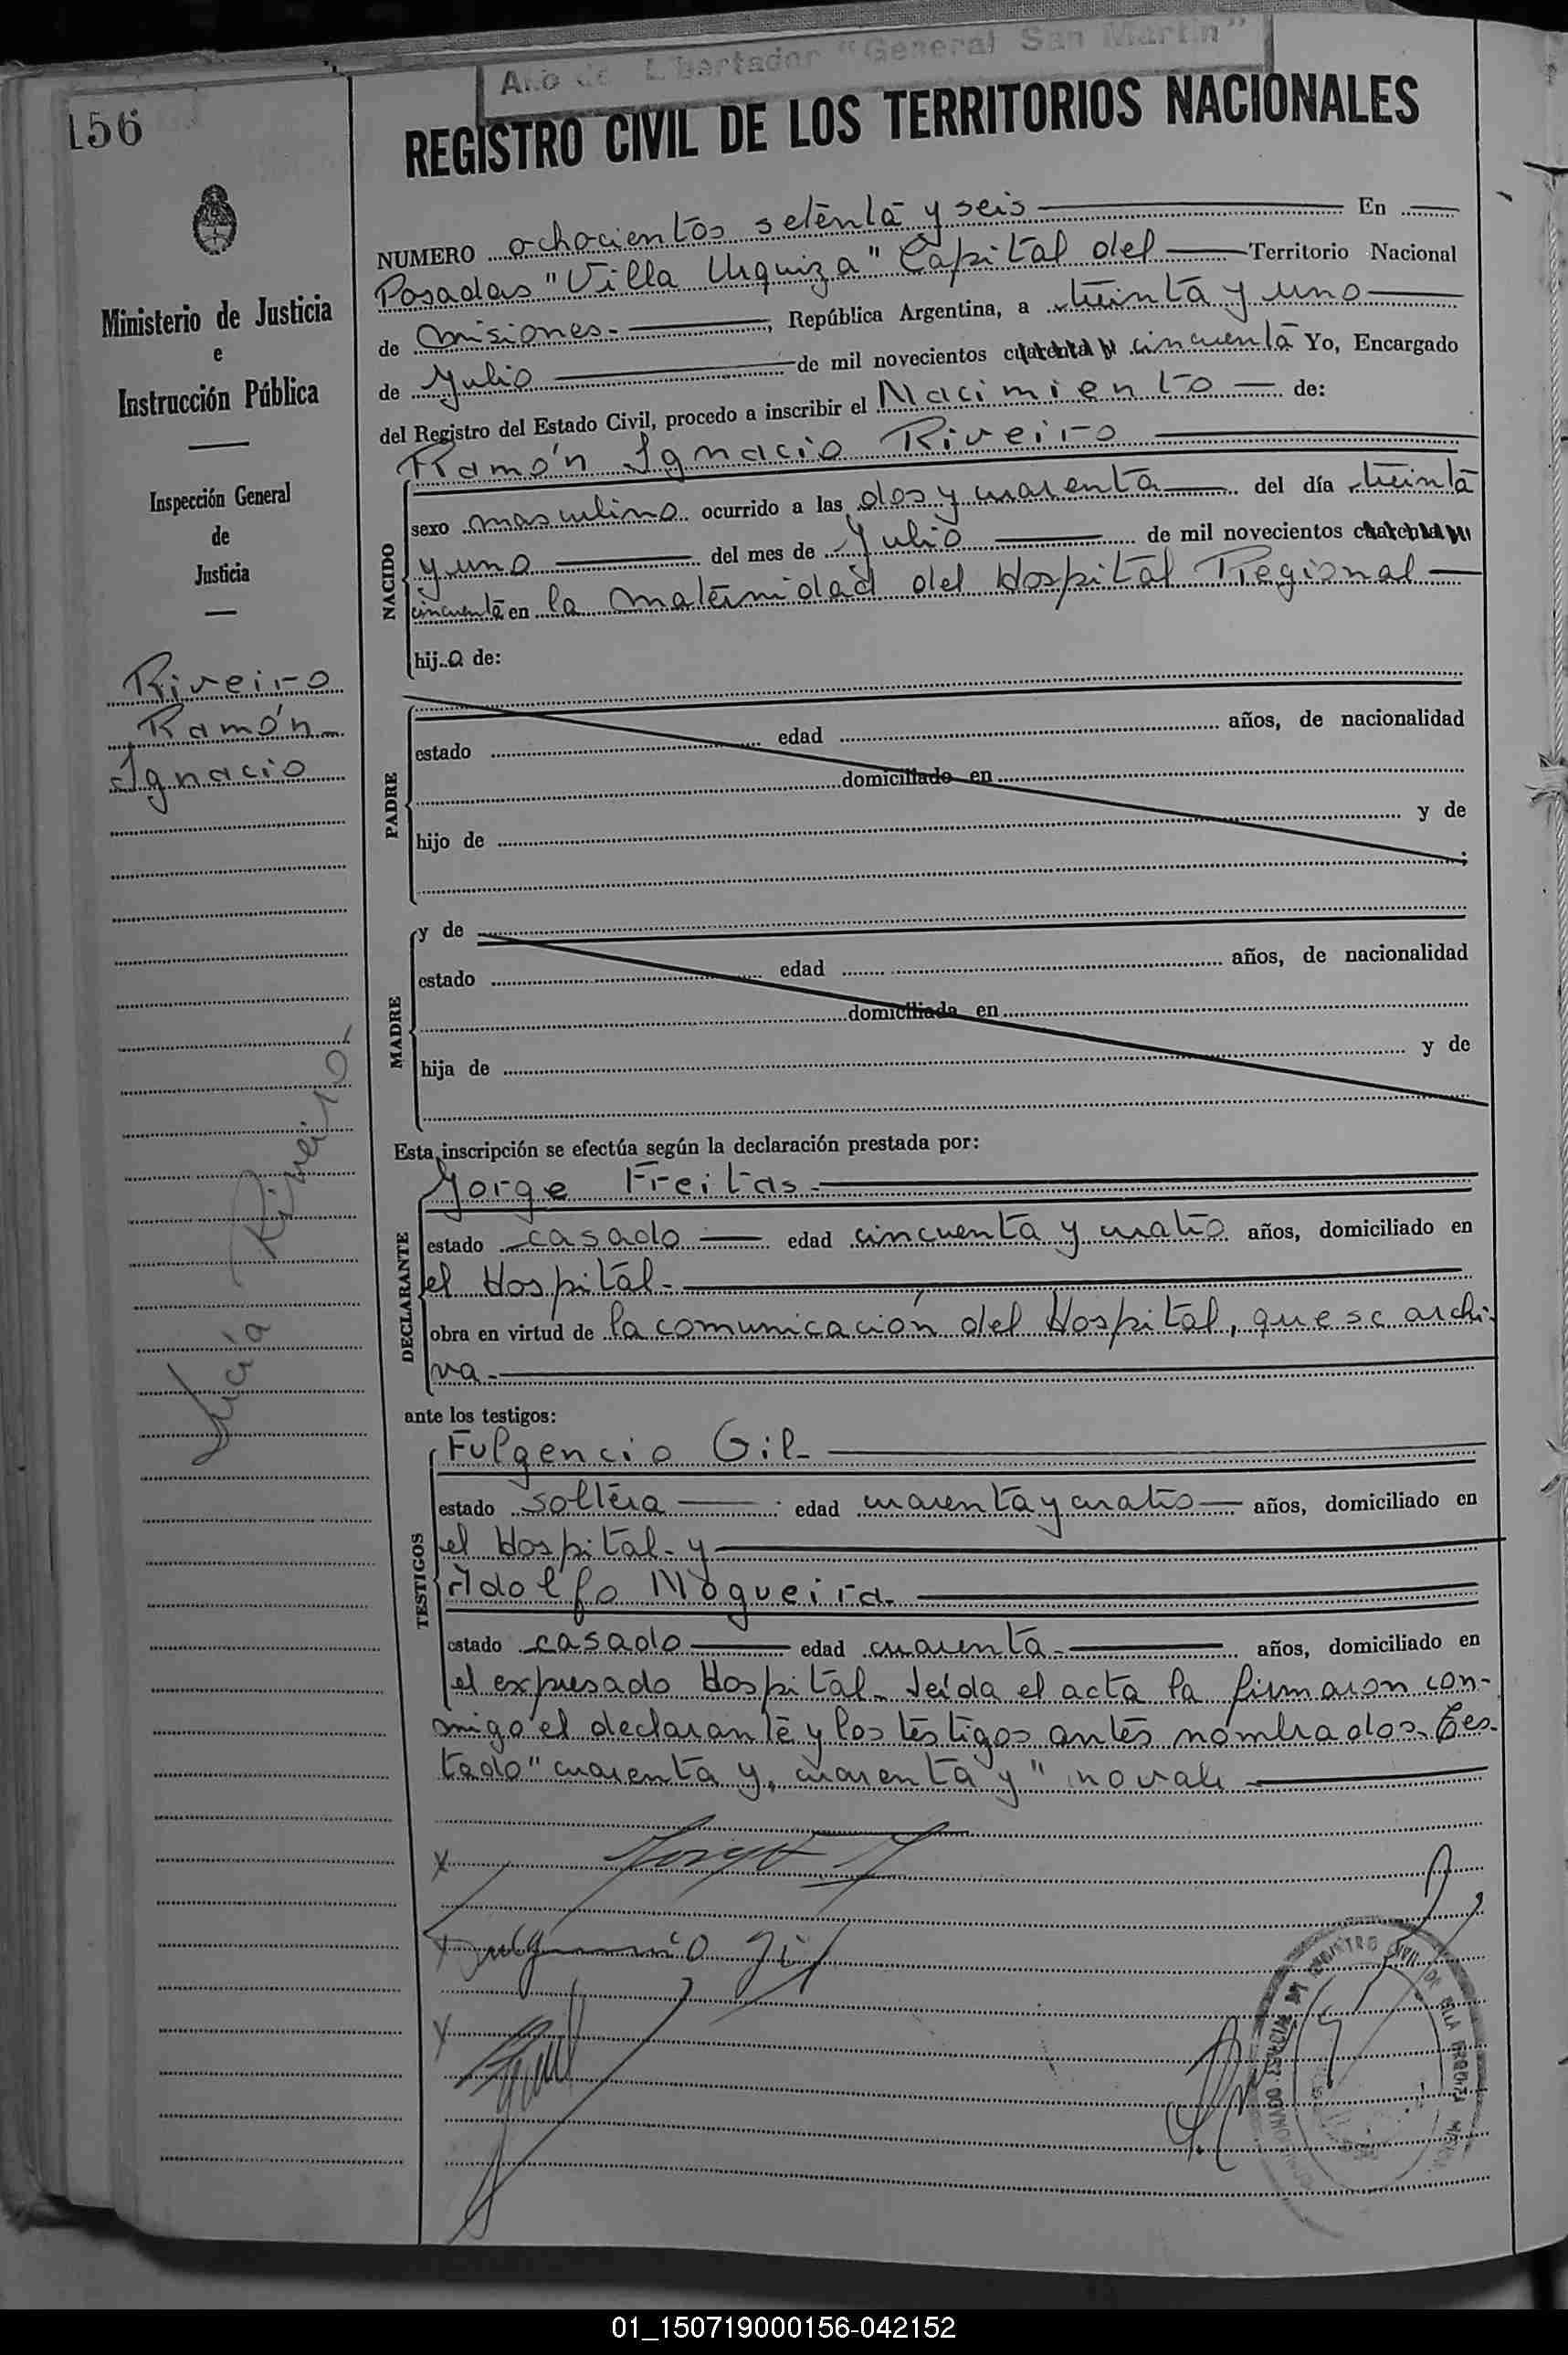 Año del Libertador "General San Martín"
156
REGISTRO CIVIL DE LOS TERRITORIOS NACIONALES
Ministerio de Justicia
e
Instrucción Pública
Inspección General
de
Justicia
Riveiro
Ramón
Ignacio
Lucía Riveiro
NUMERO ochocientos setenta y seis En
Posadas "Villa Urquiza" Capital del Territorio Nacional
de Misiones.-, República Argentina, a treinta y uno
de Julio de mil novecientos cuarenta y cincuenta Yo, Encargado
del Registro del Estado Civil, procedo a inscribir el Nacimiento de:
Ramón Ignacio Riveiro
NACIDO
sexo masculino ocurrido a las dos y cuarenta del día treinta
y uno del mes de Julio de mil novecientos cuarenta y
cincuenta en la maternidad del Hospital Regional
hijo de:
PADRE
estado edad años, de nacionalidad
domiciliado en
hijo de y de
;
MADRE
y de
estado edad años, de nacionalidad
domiciliada en
hija de y de
Esta inscripción se efectúa según la declaración prestada por:
DECLARANTE
Jorge Freitas.
estado casado edad cincuenta y cuatro años, domiciliado en
el Hospital.-
obra en virtud de la comunicación del Hospital, que se archi-
va.-
ante los testigos:
TESTIGOS
Fulgencio Gil-
estado soltera edad cuarenta y cuatro años, domiciliado en
el Hospital- y
Adolfo Nogueira.
estado casado edad cuarenta.- años, domiciliado en
el expresado Hospital- Leída el acta la firmaron con-
migo el declarante y los testigos antes nombrados. Tes-
tado "cuarenta y, cuarenta y" no vale
x Jorge F
x Fulgencio Gil
x
01_150719000156-042152